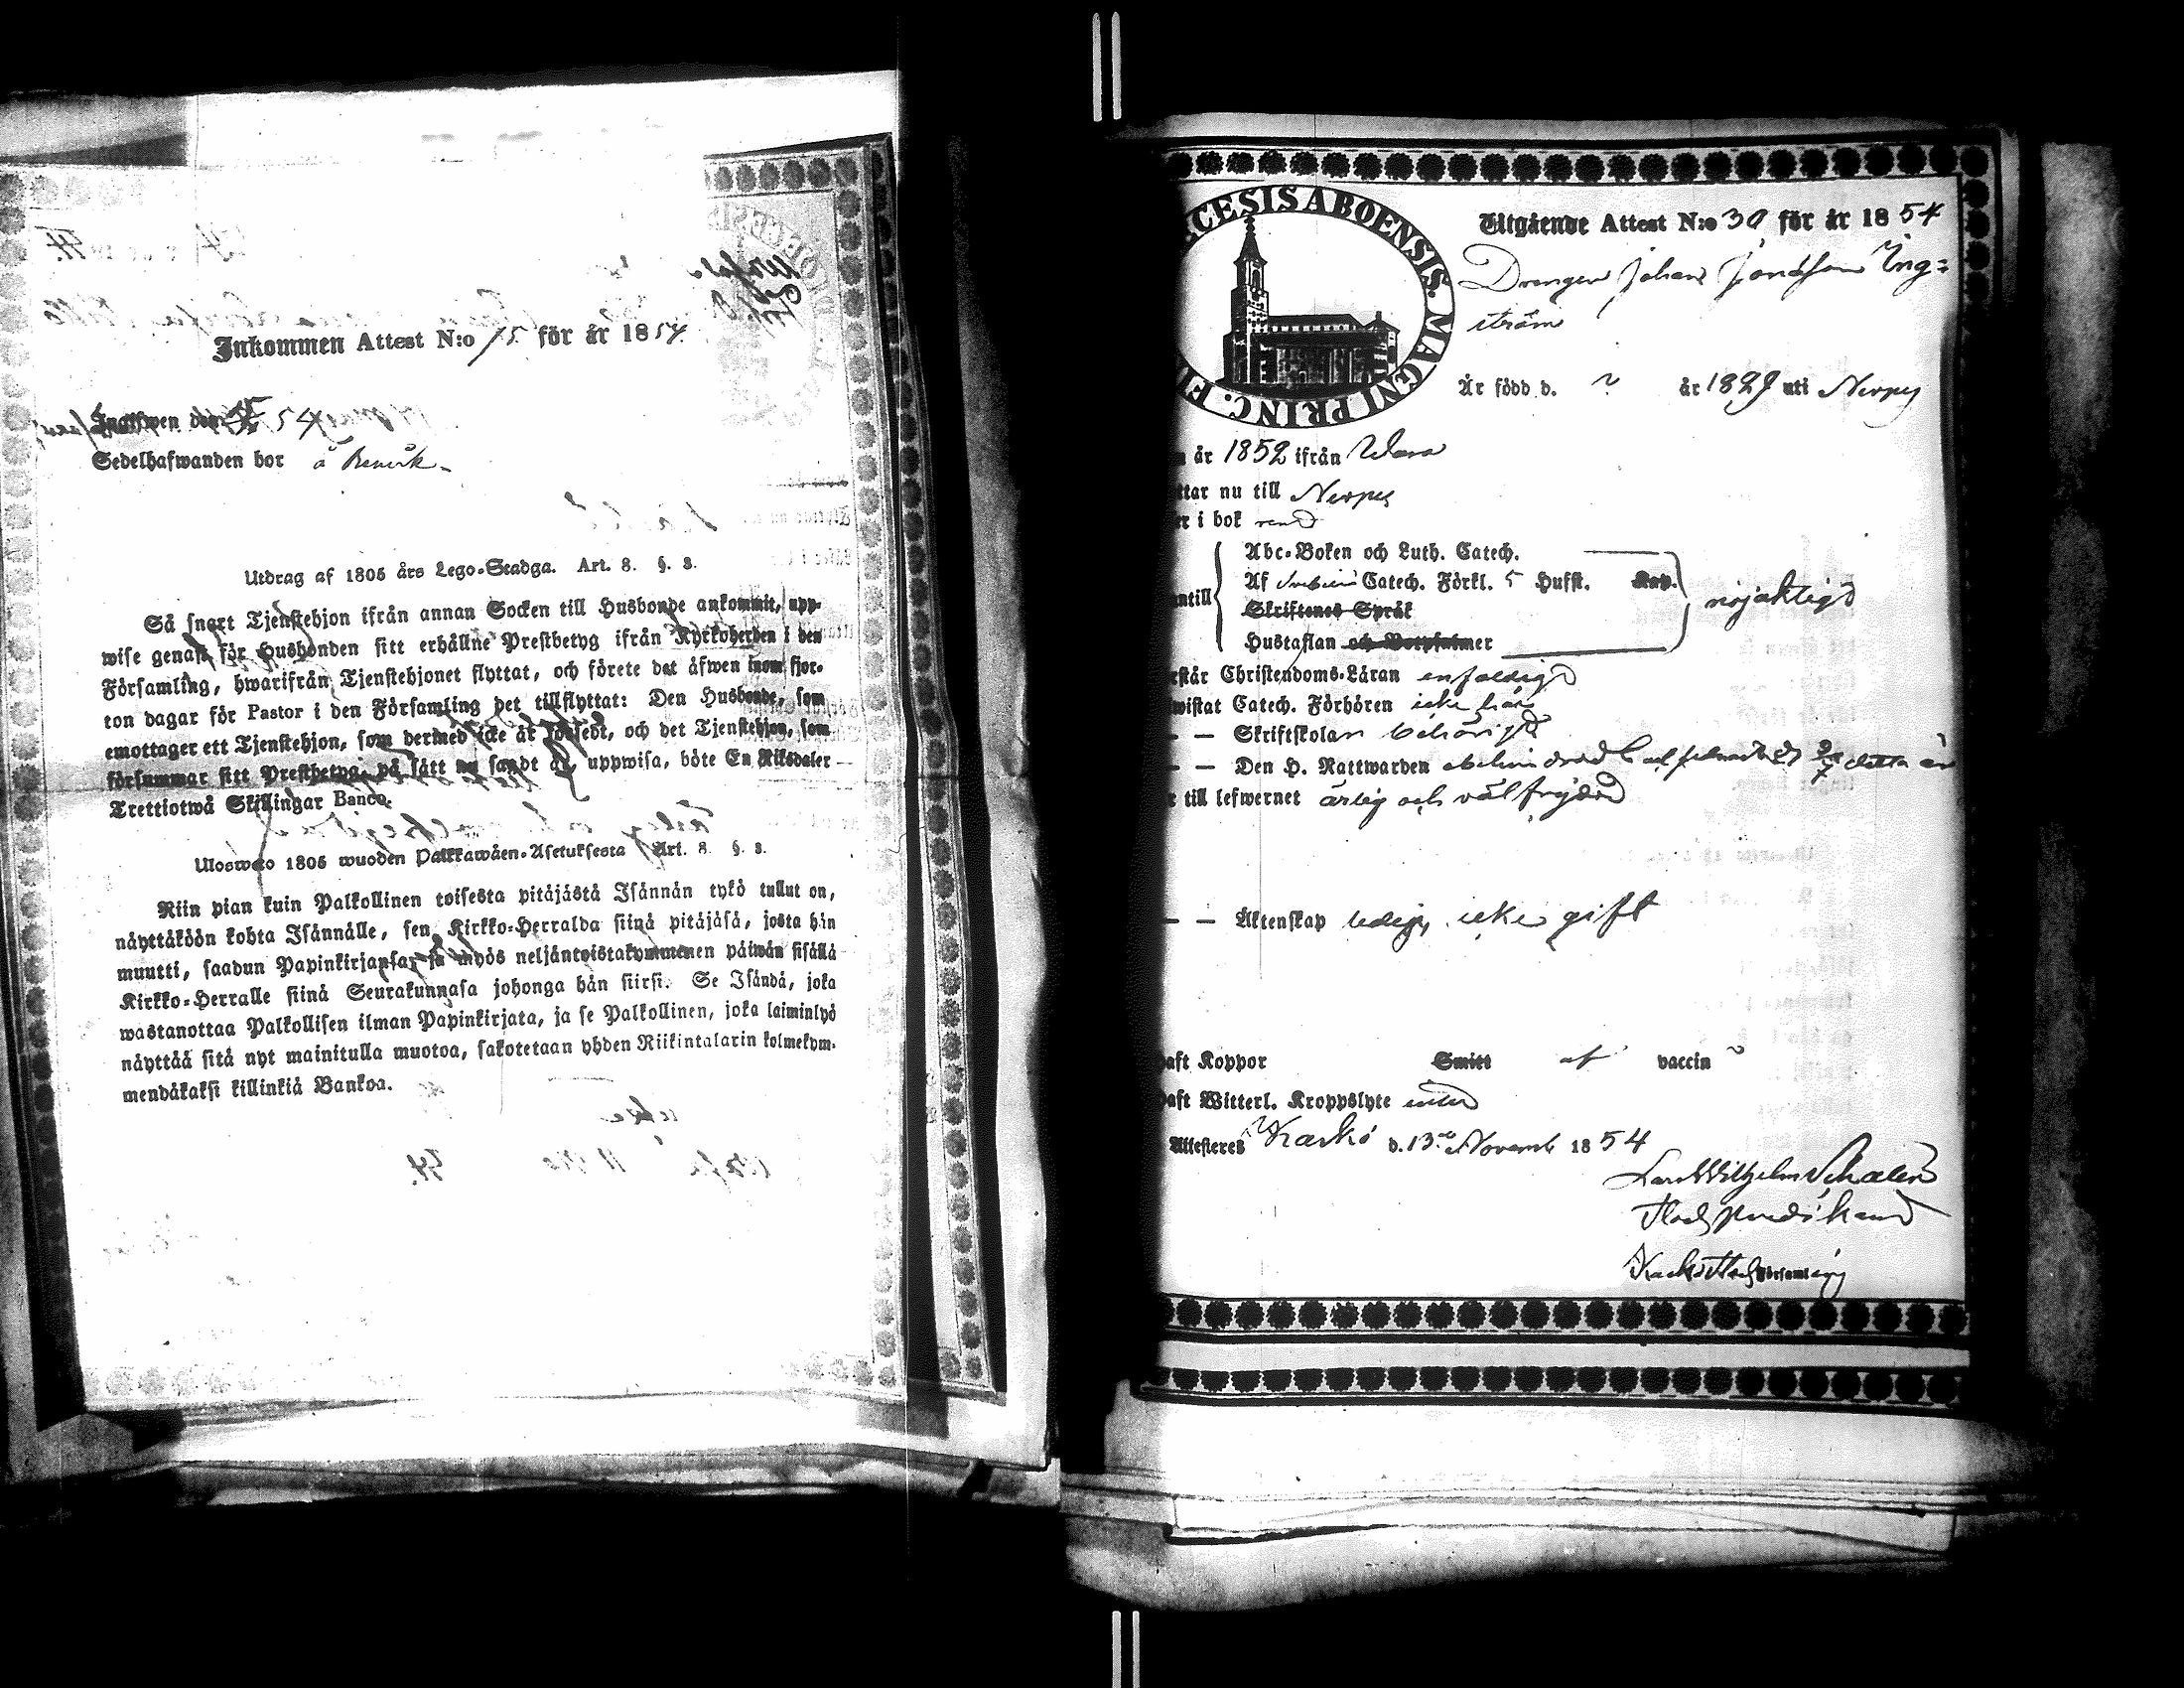 Inkommen Attest N:o 15 för år 1854
Ingifwen den 54
Sedelhafwanden bor å
Utdrag af 1805 års Lego-Stadga. Art. 8. §. 3.
Så snart Tjenstehjon ifrån annan Socken till Husbonde ankommit, upp-
wise genast för Husbonden sitt erhållne Prestbetyg ifrån Kyrkoherden i den
Församling, hwarifrån Tjenstehjonet flyttat, och förete det äfwen inom fjor-
ton dagar för Pastor i den Församling det tillflyttat: Den Husbonde, som
emottager ett Tjenstehjon, som dermed icke är försedt, och det Tjenstehjon, som
försummar sitt Prestbetyg, på sätt nu sagdt är, uppwisa, böte En Riksdaler
Trettiotwå Skillingar Banco.
Ulosweto 1805 wuoden Palkkawäen-Asetuksesta Art. 8. §. 3.
Niin pian kuin Palkollinen toisesta pitäjästä Isännän tykö tullut on,
näyttäköön kohta Isännälle, sen Kirkko-Herralda siinä pitäjäsä, josta hän
muutti, saadun Papinkirjansa, ja myös neljäntoistakymmenen päiwän sisällä
Kirkko-Herralle siinä Seurakunnasa johonga hän siirsi. Se Isändä, joka
wastanottaa Palkollisen ilman Papinkirjata, ja se Palkollinen, joka laiminlyö
näyttää sitä nyt mainitulla muotoa, sakotetaan yhden Riikintalarin kolmekym-
mendäkaksi killinkiä Bankoa.
ECESIS ABOENSIS. MAGNI PRINC. FI
Utgående Attest N:o 30 för år 1854
Drengen Johan Jonasson Eng-
ström
Är född d. ? år 1829 uti Nerpes
n år 1852 ifrån Wasa
ttar nu till Nerpes
er i bok rent
Abc-Boken och Luth. Catech.
Af Svebilii Catech. Förkl. 5 Hufst. Kap.
nntill Skriftenes Språk nöjaktigt
Hustaflan och Botpsalmer
rstår Christendoms-Läran enfaldigt
wistat Catech. Förhören icke här
— — Skriftskolan behörigt
— — Den H. Nattwarden detta år
r till lefwernet ärlig och väl frejdad
— — Äktenskap ledig, icke gift
haft Koppor Smitt af vaccin ?
haft Witterl. Kroppslyte intet
Attesteras Kaskö d. 13de Novemb 1854
Lars Wilhelm Schalin
Kaskö Stads Församling